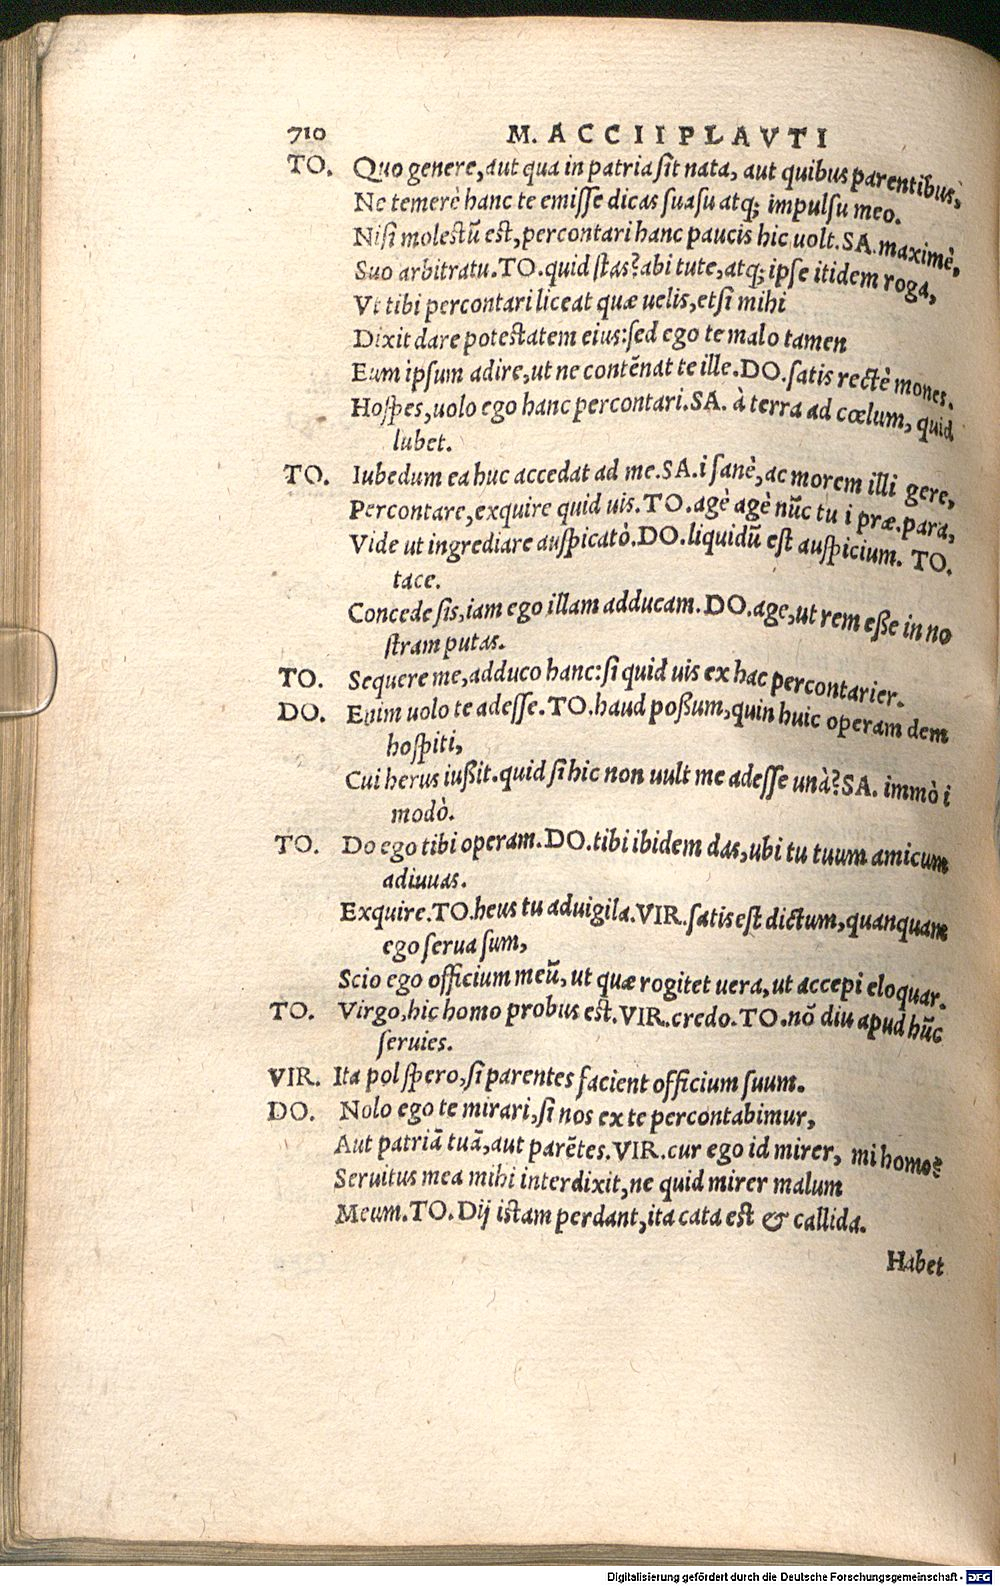 710 M. ACCII PLAVTI
TO. Quo genere, aut qua in patria sit nata, aut quibus parentibus,
Ne temerè hanc te emisse dicas suasu atq; impulsu meo.
Nisi molestũ est, percontari hanc paucis hic uolt. SA. maximè,
Suo arbitratu. TO. quid stas? abi tute, atq; ipse itidem roga,
Vt tibi percontari liceat quæ uelis, etsi mihi
Dixit dare potestatem eius: sed ego te malo tamen
Eum ipsum adire, ut ne contẽnat te ille. DO. satis rectè mones.
Hospes, uolo ego hanc percontari. SA. à terra ad cœlum, quid
lubet.
TO. Iubedum ea huc accedat ad me. SA. i sanè, ac morem illi gere,
Percontare, exquire quid uis. TO. agè agè nũc tu i præ. para,
Vide ut ingrediare auspicatò. DO. liquidũ est auspicium. TO.
tace.
Concede sis, iam ego illam adducam. DO. age, ut rem eße in no
stram putas.
TO. Sequere me, adduco hanc: si quid uis ex hac percontarier.
DO. Enim uolo te adesse. TO. haud poßum, quin huic operam dem
hospiti,
Cui herus iußit. quid si hic non uult me adesse unà? SA. immò i
modò.
TO. Do ego tibi operam. DO. tibi ibidem das, ubi tu tuum amicum
adiuuas.
Exquire. TO. heus tu aduigila. VIR. satis est dictum, quanquam
ego serua sum,
Scio ego officium meũ, ut quæ rogitet uera, ut accepi eloquar.
TO. Virgo, hic homo probus est. VIR. credo. TO. nõ diu apud hũc
seruies.
VIR. Ita pol spero, si parentes facient officium suum.
DO. Nolo ego te mirari, si nos ex te percontabimur,
Aut patriã tuã, aut parẽtes. VIR. cur ego id mirer, mi homo?
Seruitus mea mihi interdixit, ne quid mirer malum
Meum. TO. Dij istam perdant, ita cata est & callida.
Habet
Digitalisierung gefördert durch die Deutsche Forschungsgemeinschaft - DFG